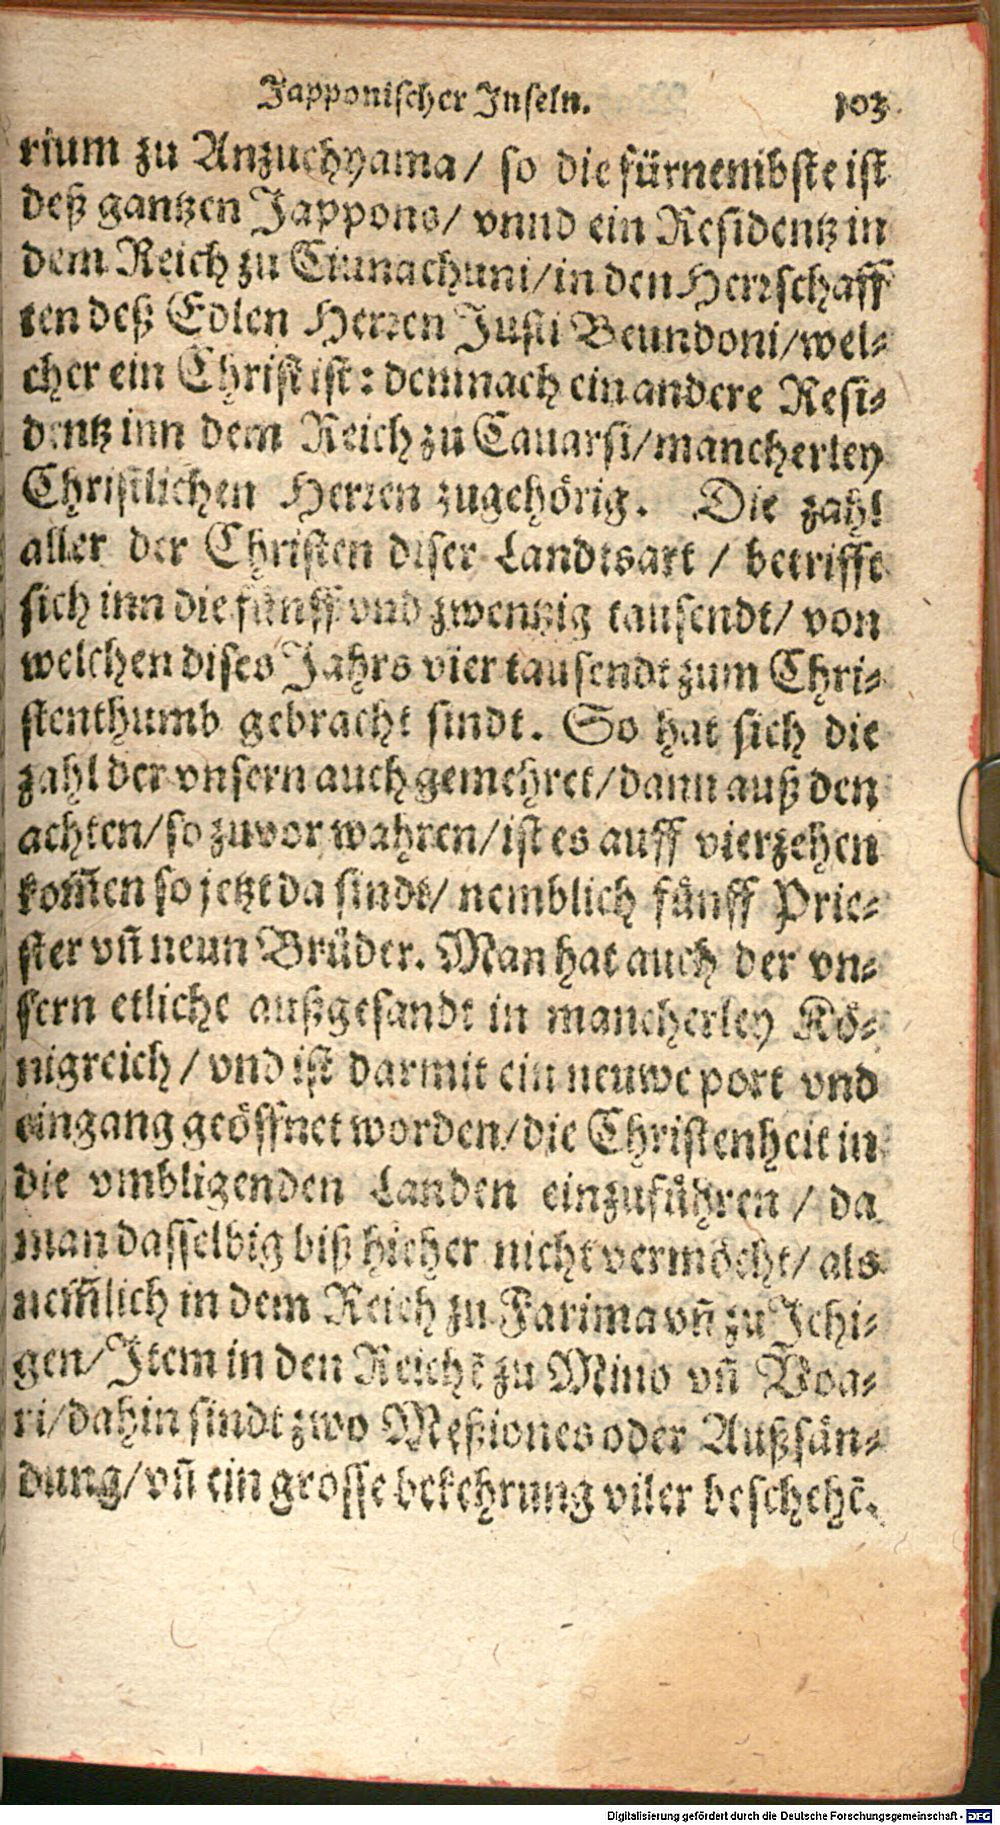 Japponischer Inseln. 103
rium zu Anzuchyama/ so die fürnembste ist
deß gantzen Jappons/ vnnd ein Residentz in
dem Reich zu Ciunachuni/in den Herrschaff
ten deß Edlen Herren Justi Veundoni/wel-
cher ein Christ ist: demnach ein andere Resi-
dentz inn dem Reich zu Cauarsi/mancherley
Christlichen Herren zugehörig. Die zahl
aller der Christen diser Landtsart / betrifft
sich inn die fünff vnd zwentzig tausendt/ von
welchen dises Jahrs vier tausendt zum Chri-
stenthumb gebracht sindt. So hat sich die
zahl der vnsern auch gemehret/dann auß den
achten/so zuvor wahren/ist es auff vierzehen
kom̃en so jetzt da sindt/ nemblich fünff Prie-
ster vñ neun Brüder. Man hat auch der vn-
sern etliche außgesandt in mancherley Kö-
nigreich / vnd ist darmit ein neuwe port vnd
eingang geöffnet worden/die Christenheit in
die vmbligenden Landen einzuführen / da
man dasselbig biß hieher nicht vermöcht/ als
nem̃lich in dem Reich zu Farima vñ zu Jchi-
gen/Jtem in den Reichẽ zu Mino vñ Voa-
ri/dahin sindt zwo Meßiones oder Außsän-
dung/vñ ein grosse bekehrung viler beschehẽ.
Digitalisierung gefördert durch die Deutsche Forschungsgemeinschaft - DFG